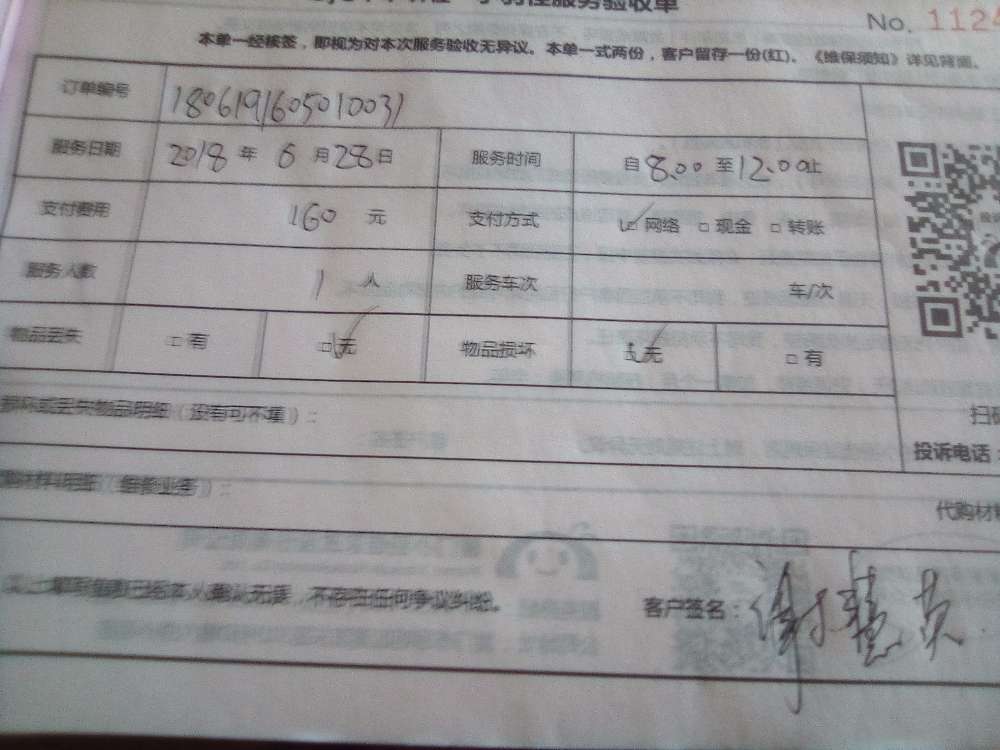 服务验收单
No. 1124
本单一经核签，即视为对本次服务验收无异议。本单一式两份，客户留存一份(红)、《维保须知》详见背面。
订单编号 1806191605010031
服务日期 2018 年 6 月 28 日 服务时间 自 8.00 至 12.00 止
支付费用 160 元 支付方式 ☑ 网络 □ 现金 □ 转账
服务人数 1 人 服务车次 车/次
物品丢失 □ 有 ☑ 无 物品损坏 ☑ 无 □ 有
损坏或丢失物品明细（没有可不填）：
扫码
投诉电话：
材料明细（维修业务）：
代购材料
以上填写金额已经本人确认无误，不存在任何争议纠纷。
客户签名：谢慧英